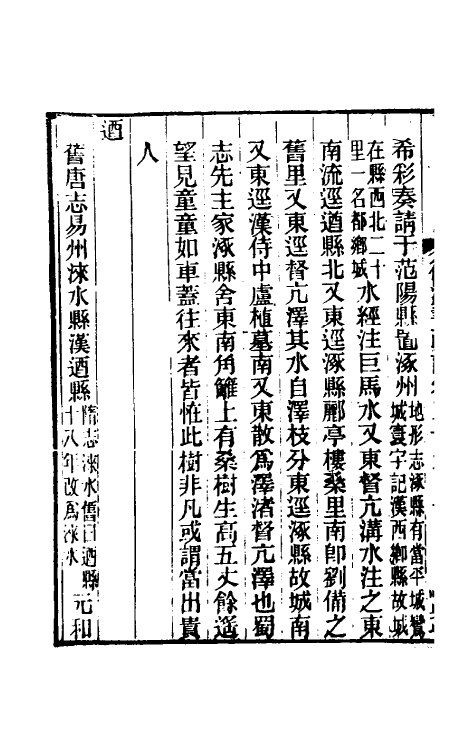 希彩奏請于范陽縣置涿州地形志涿縣有當平城鸞城寰宇記漢西鄉縣故城
在縣西北二十里一名都鄉城水經注巨馬水又東督亢溝水注之東
南流逕遒縣北又東逕涿縣酈亭樓桑里南卽劉備之
舊里又東逕督亢澤其水自澤枝分東逕涿縣故城南
又東逕漢侍中盧植墓南又東散爲澤渚督亢澤也蜀
志先主家涿縣舍東南角籬上有桑樹生高五丈餘遥
望見童童如車蓋往來者皆怪此樹非凡或謂當出貴
人
遒
舊唐志易州淶水縣漢遒縣隋志淶水舊曰遒縣十八年改爲淶水元和